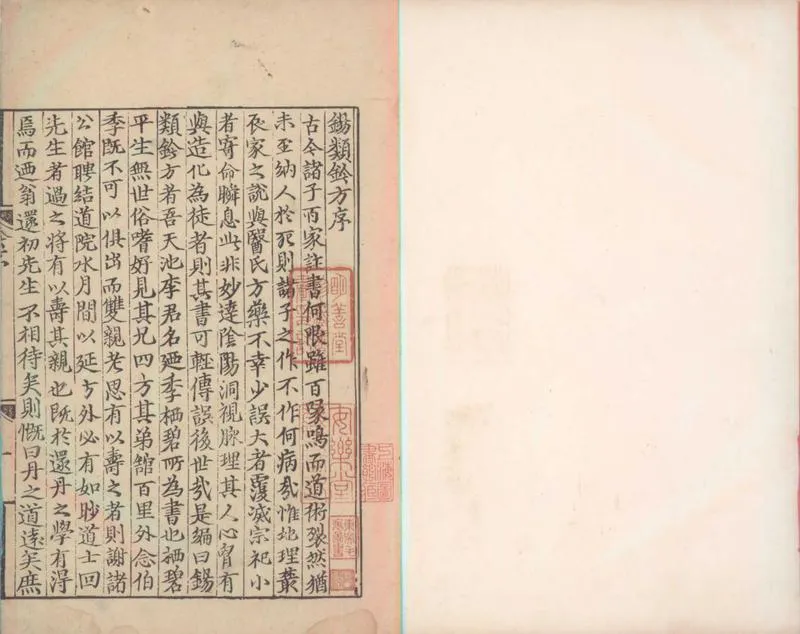 錫類鈐方序
古今諸子百家註書何限雖百家鳴而道術裂然猶
未至納人於死則諸子之作不作何病哉惟地理叢
辰家之說與醫氏方藥不幸少誤大者覆滅宗祀小
者寄命瞬息此非妙達陰陽洞視脉理其人心胷有
與造化為徒者則其書可輕傳誤後世哉是編曰錫
類鈐方者吾天池李君名廼季栖碧所為書也栖碧
平生無世俗嗜好見其兄四方其弟舘百里外念伯
季既不可以俱出而雙親老思有以壽之者則謝諸
公館聘結道院水月間以延方外必有如眇道士回
先生者過之將有以壽其親也既於還丹之學有得
焉而迺翁還初先生不相待矣則慨曰丹之道遠矣庶
明善堂
安樂堂